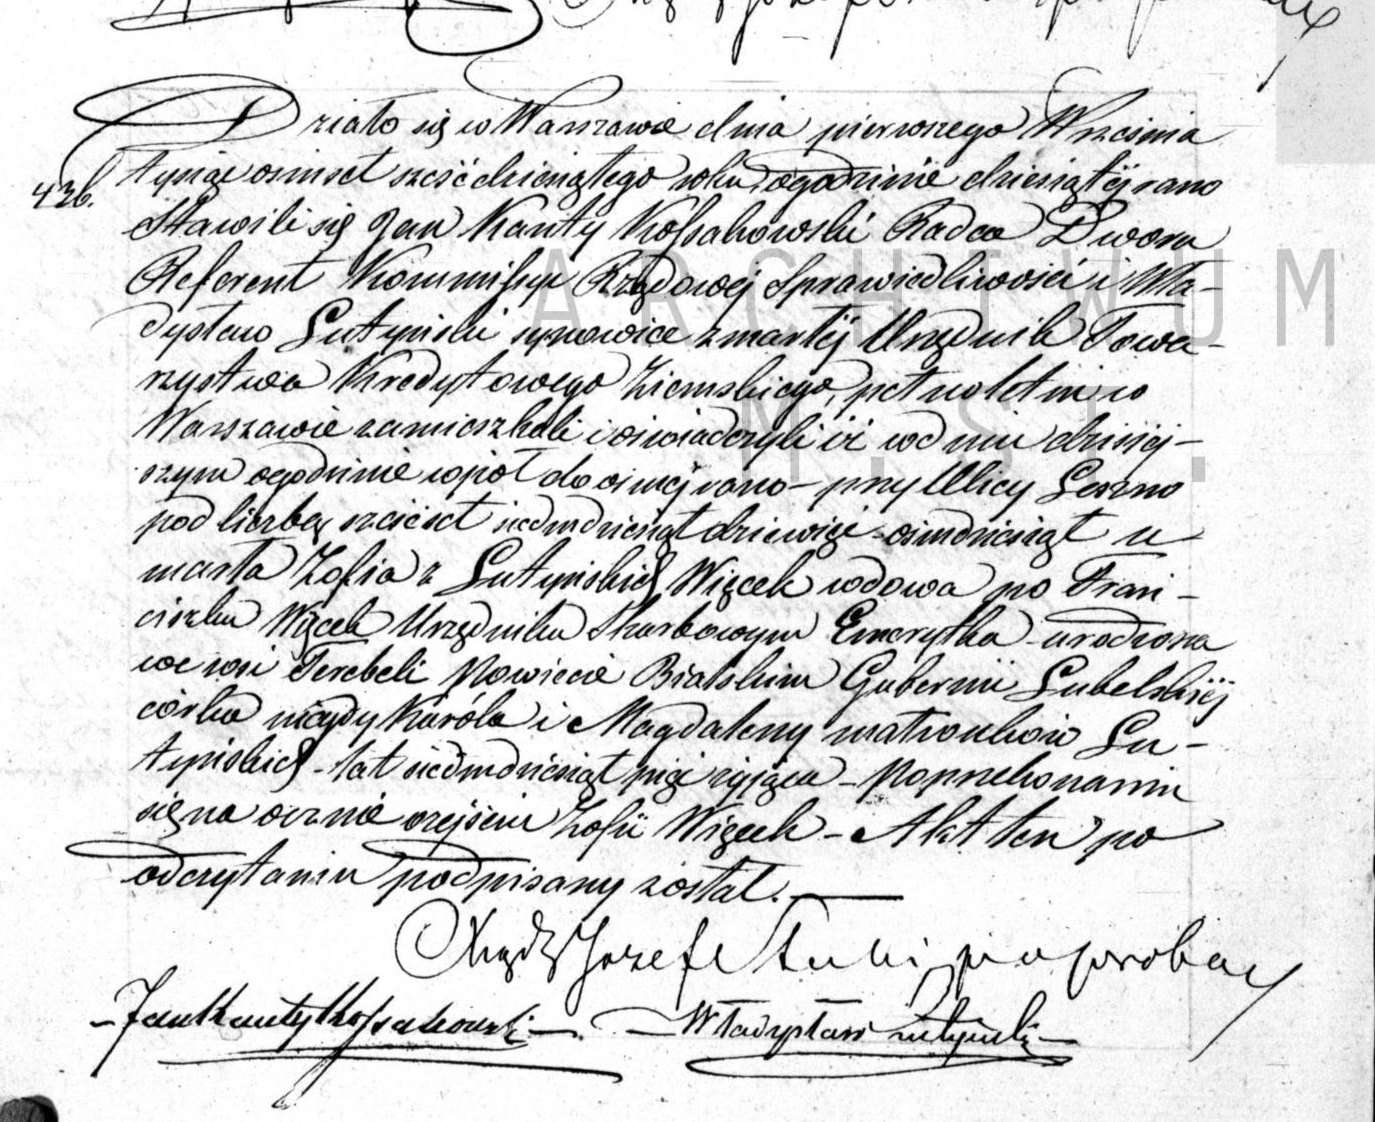 426.
Działo się w Warszawie dnia pierwszego Września
tysiąc ośmset sześćdziesiątego roku, o godzinie dziesiątej rano
Stawili się Jan Kanty Kossakowski Radca Dworu
Referent Kommissyi Rządowej Sprawiedliwości i Wła-
dysław Lutyński synowiec zmarłej Urzędnik Towa-
rzystwa Kredytowego Ziemskiego, pełnoletni w
Warszawie zamieszkali i oświadczyli iż w dniu dzisiej-
szym o godzinie wpół do ósmej rano – przy Ulicy Leszno
pod liczbą sześćset siedmdziesiąt dziewięć – ośmdziesiąt u-
marła Zofia z Lutyńskich Więcek wdowa po Fran-
ciszku Więcek Urzędniku Skarbowym Emerytka – urodzona
we wsi Terebeli Powiecie Bialskim Gubernii Lubelskiej
córka niegdy Karóla i Magdaleny małżonków Lu-
tyńskich – lat siedmdziesiąt pięć żyjąca – Po przekonaniu
się na ocznie o zejściu Zofii Więcek – Akt ten po
odczytaniu podpisany został. —
Xiądz Józef
– Jan Kanty Kossakowski – – Władysław Lutyński –
ARCHIWUM
M. ST.